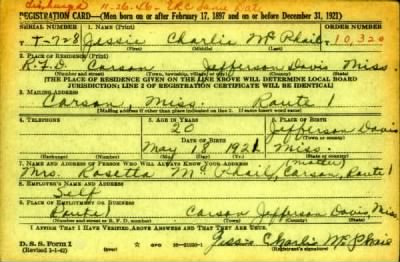 Discharged 11-26-46 - ERC Same Date
REGISTRATION CARD—(Men born on or after February 17, 1897 and on or before December 31, 1921)
SERIAL NUMBER 1. NAME (Print) ORDER NUMBER
T-728 Jessie Charlie McPhail 10,320
(First) (Middle) (Last)
2. PLACE OF RESIDENCE (Print)
R.F.D. Carson Jefferson Davis Miss
(Number and street) (Town, township, village, or city) (County) (State)
[THE PLACE OF RESIDENCE GIVEN ON THE LINE ABOVE WILL DETERMINE LOCAL BOARD
JURISDICTION; LINE 2 OF REGISTRATION CERTIFICATE WILL BE IDENTICAL]
3. MAILING ADDRESS
Carson, Miss. Route 1
[Mailing address if other than place indicated on line 2. If same insert word same]
4. TELEPHONE 5. AGE IN YEARS 6. PLACE OF BIRTH
20 Jefferson Davis
DATE OF BIRTH (Town or county)
May 18 1921 Miss.
(Exchange) (Number) (Mo.) (Day) (Yr.) (State or country)
7. NAME AND ADDRESS OF PERSON WHO WILL ALWAYS KNOW YOUR ADDRESS (mother)
Mrs. Rosetta McPhail, Carson, Route 1
8. EMPLOYER'S NAME AND ADDRESS
Self
9. PLACE OF EMPLOYMENT OR BUSINESS
Route 1 Carson Jefferson Davis, Miss
(Number and street or R. F. D. number) (Town) (County) (State)
I AFFIRM THAT I HAVE VERIFIED ABOVE ANSWERS AND THAT THEY ARE TRUE.
D. S. S. Form 1 Jessie Charlie McPhail
(Revised 3-1-42) (Registrant's signature)